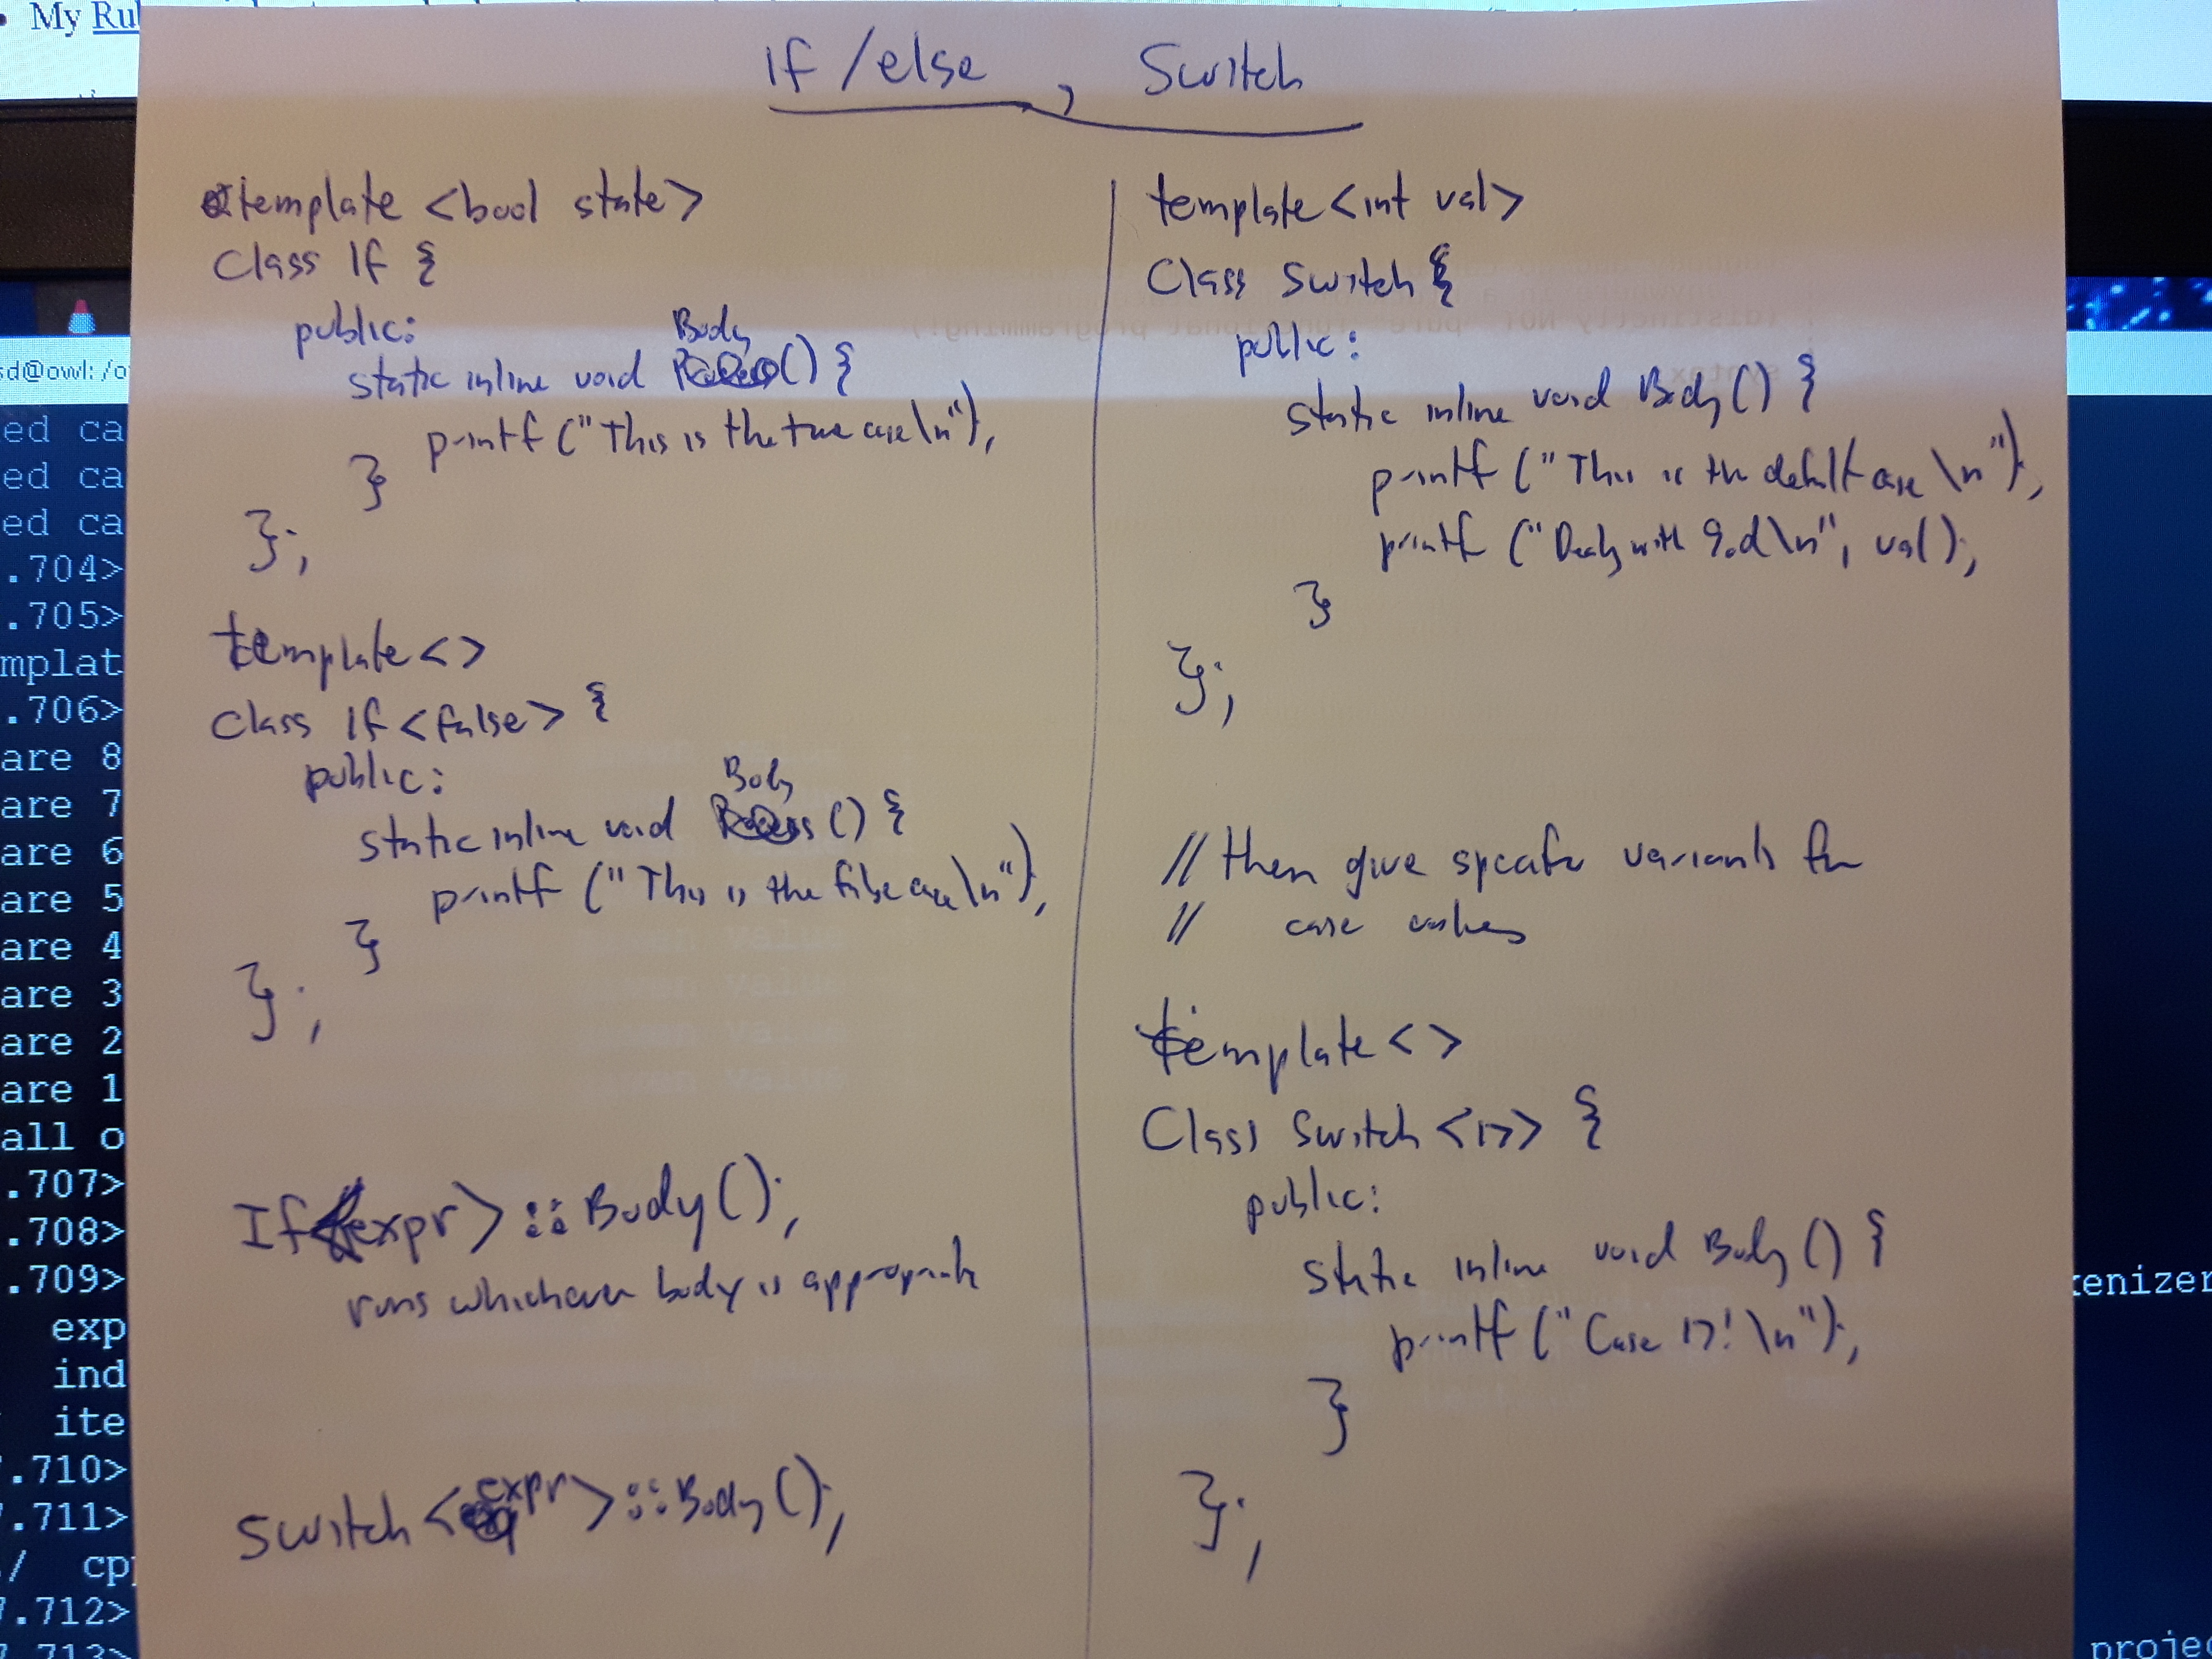 My Ru
If/else, Switch
template <bool state>
Class If {
public:
Body
static inline void () {
printf ("This is the true case\n");
}
};
template <>
class If <false> {
public:
Body
static inline void () {
printf ("This is the false case\n");
}
};
If<expr>::Body();
runs whichever body is appropriate
Switch <expr>::Body();
template <int val>
Class Switch {
public:
static inline void Body() {
printf ("This is the default case \n");
printf ("Dealing with %d\n", val);
}
};
// then give specific variants for
// case values
template <>
Class Switch <17> {
public:
static inline void Body() {
printf ("Case 17! \n");
}
};
sd@owl:/o
ed ca
ed ca
ed ca
.704>
.705>
mplat
.706>
are 8
are 7
are 6
are 5
are 4
are 3
are 2
are 1
all o
.707>
.708>
.709>
exp
ind
ite
.710>
.711>
/ cpp
.712>
.713>
kenizer
projec
(distinctly NOT "pure" functional programming!)
syntax